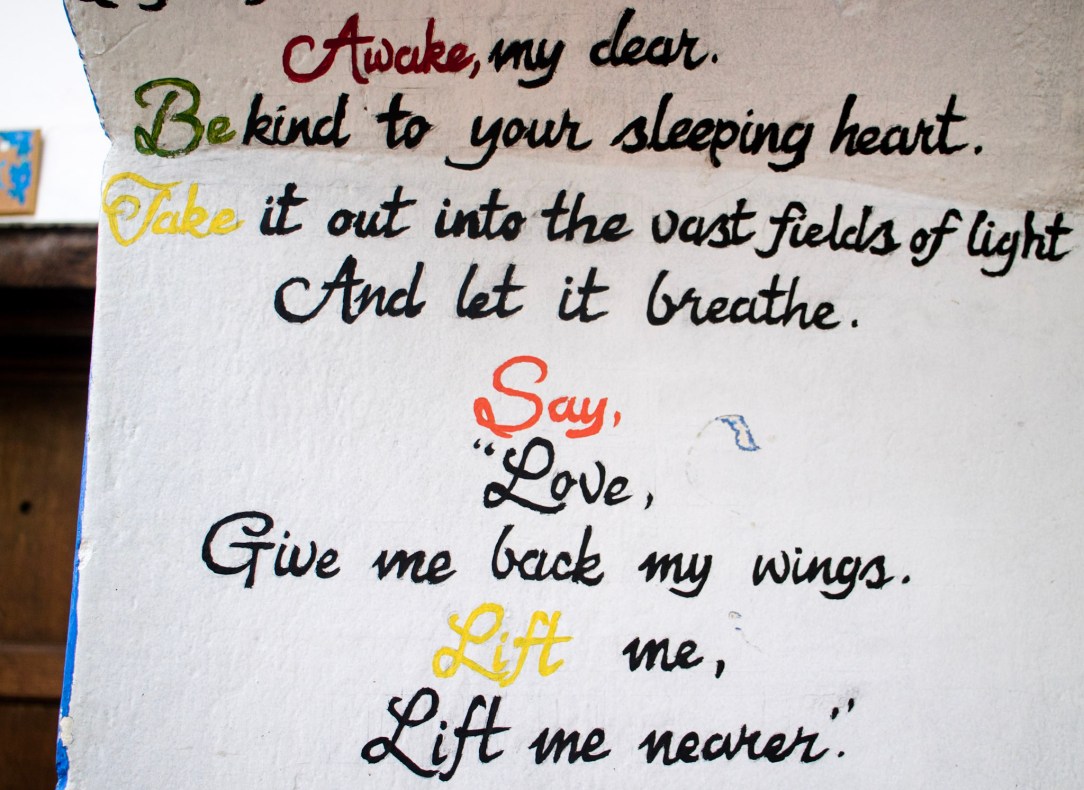 Awake, my dear.
Be kind to your sleeping heart.
Take it out into the vast fields of light
And let it breathe.
Say,
“Love,
Give me back my wings.
Lift me,
Lift me nearer”.